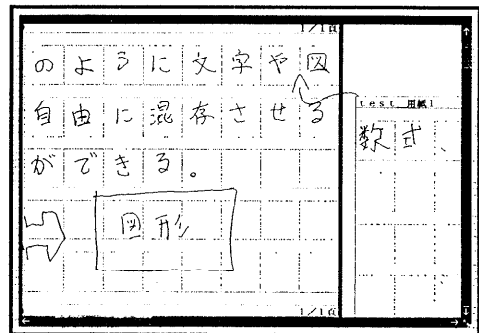 1/1頁
のように文字や図
自由に混存させる
ができる。
図形
1/1頁
test 用紙1
数式、